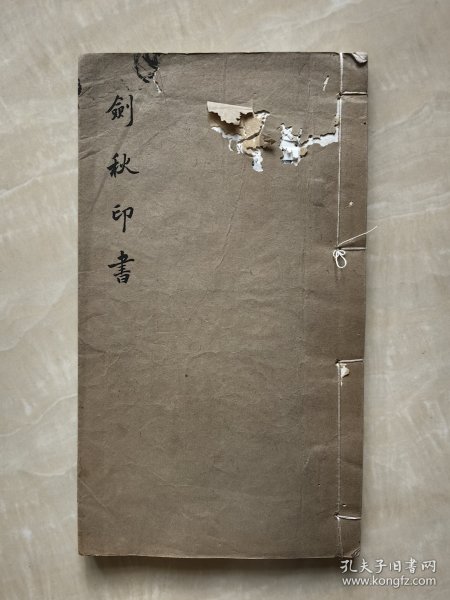 劍秋印書
孔夫子旧书网
www.kongfz.com